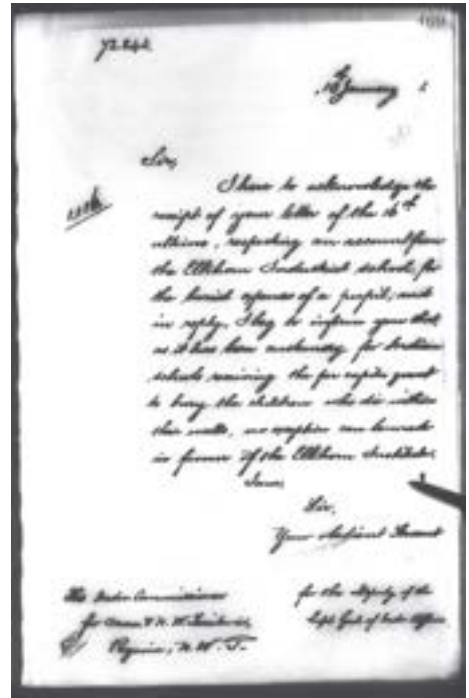 469
72242
January
Sir,
I have to acknowledge the
receipt of your letter of the 16th
ultimo, respecting an account from
the Elkhorn Industrial school, for
the burial expenses of a pupil; and
in reply, I beg to inform you that
as it has been customary for Indian
schools receiving the per capita grant
to bury the children who die within
their walls, no exception can be made
in favour of the Elkhorn Institute.
Sir,
Your obedient Servant
The Indian Commissioner
for Man & N. W. Territories,
Regina, N. W. T.
for the Deputy of the
Supt. Genl of Indian Affairs